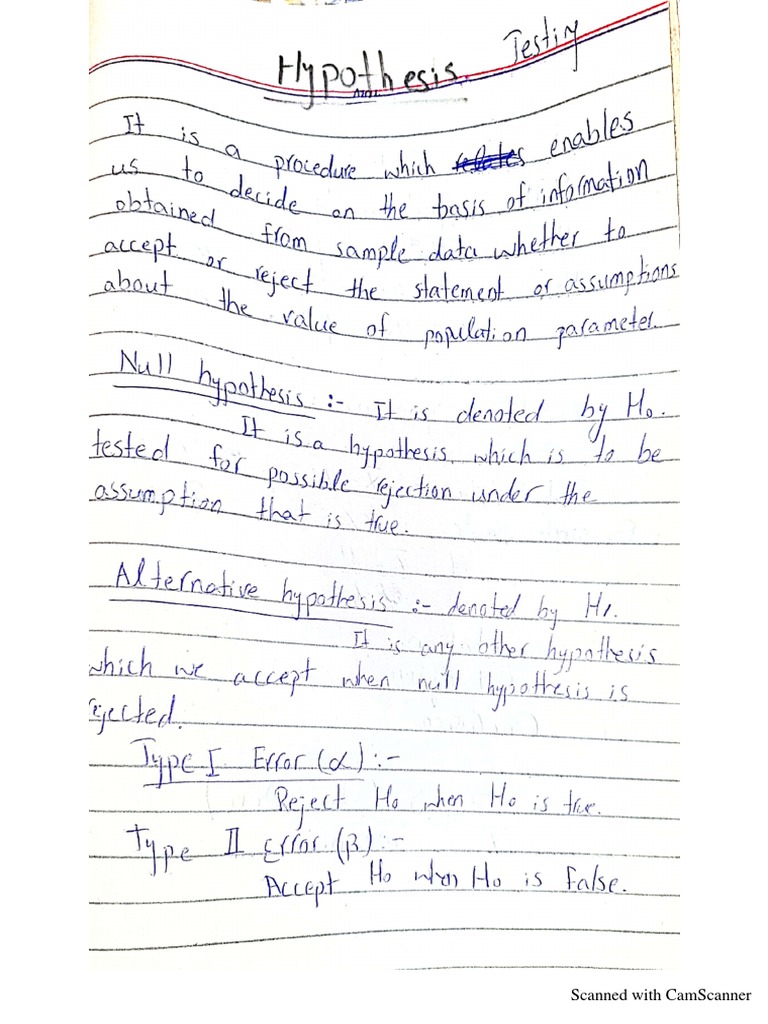 Hypothesis Testing
It is a procedure which enables
us to decide on the basis of information
obtained from sample data whether to
accept or reject the statement or assumptions
about the value of population parameter
Null hypothesis :- It is denoted by H₀.
It is a hypothesis which is to be
tested for possible rejection under the
assumption that is true.
Alternative hypothesis :- denoted by H₁.
It is any other hypothesis
which we accept when null hypothesis is
rejected.
Type I Error (α) :-
Reject H₀ when H₀ is true.
Type II Error (β) :-
Accept H₀ when H₀ is false.
Scanned with CamScanner